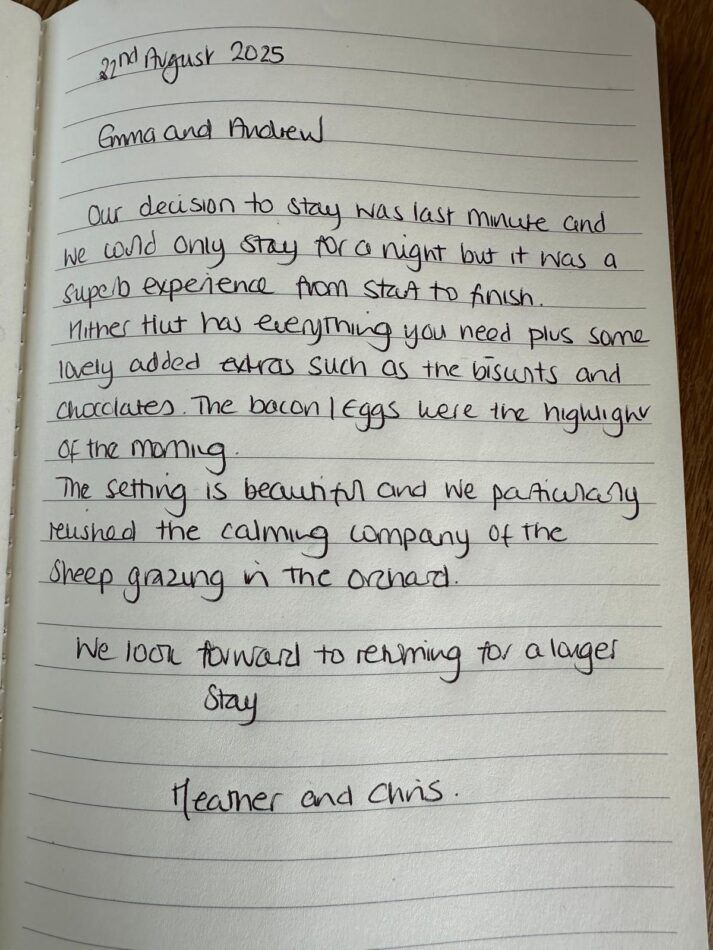 22nd August 2025
Emma and Andrew
Our decision to stay was last minute and
we could only stay for a night but it was a
superb experience from start to finish.
Hither Hut has everything you need plus some
lovely added extras such as the biscuits and
chocolates. The bacon / Eggs were the highlight
of the morning.
The setting is beautiful and we particularly
relished the calming company of the
sheep grazing in the orchard.
We look forward to returning for a longer
stay
Heather and Chris.